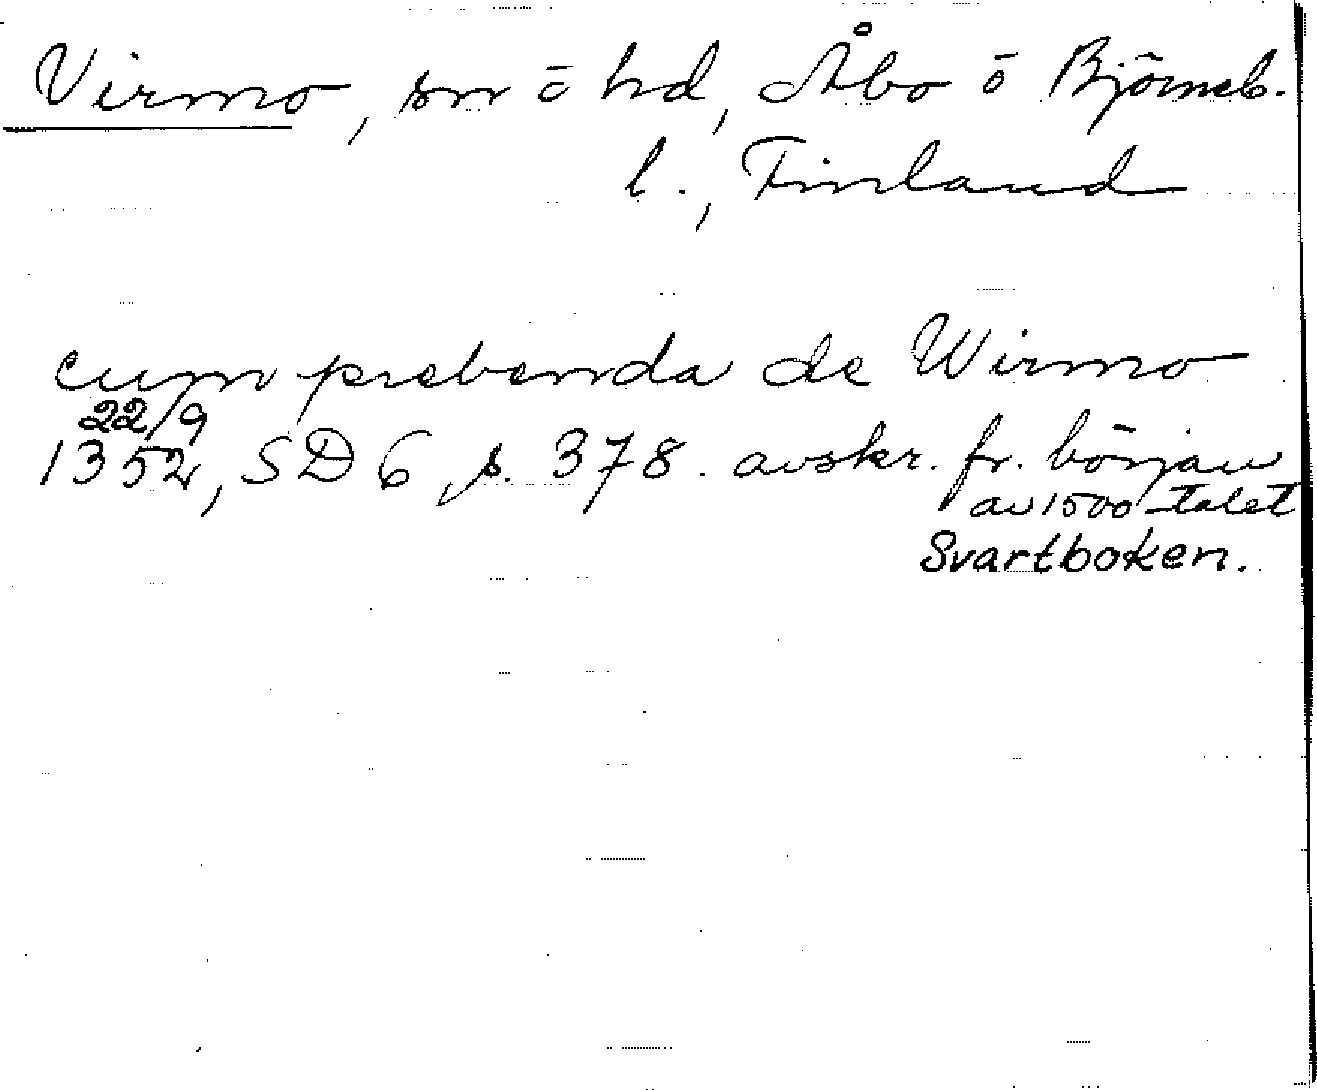 Virmo, sn o hd, Åbo o Björneb.
l., Finland
cum prebenda de Wirmo
22/9
1352, SD 6, s. 378. avskr. fr. början
av 1500-talet
Svartboken.